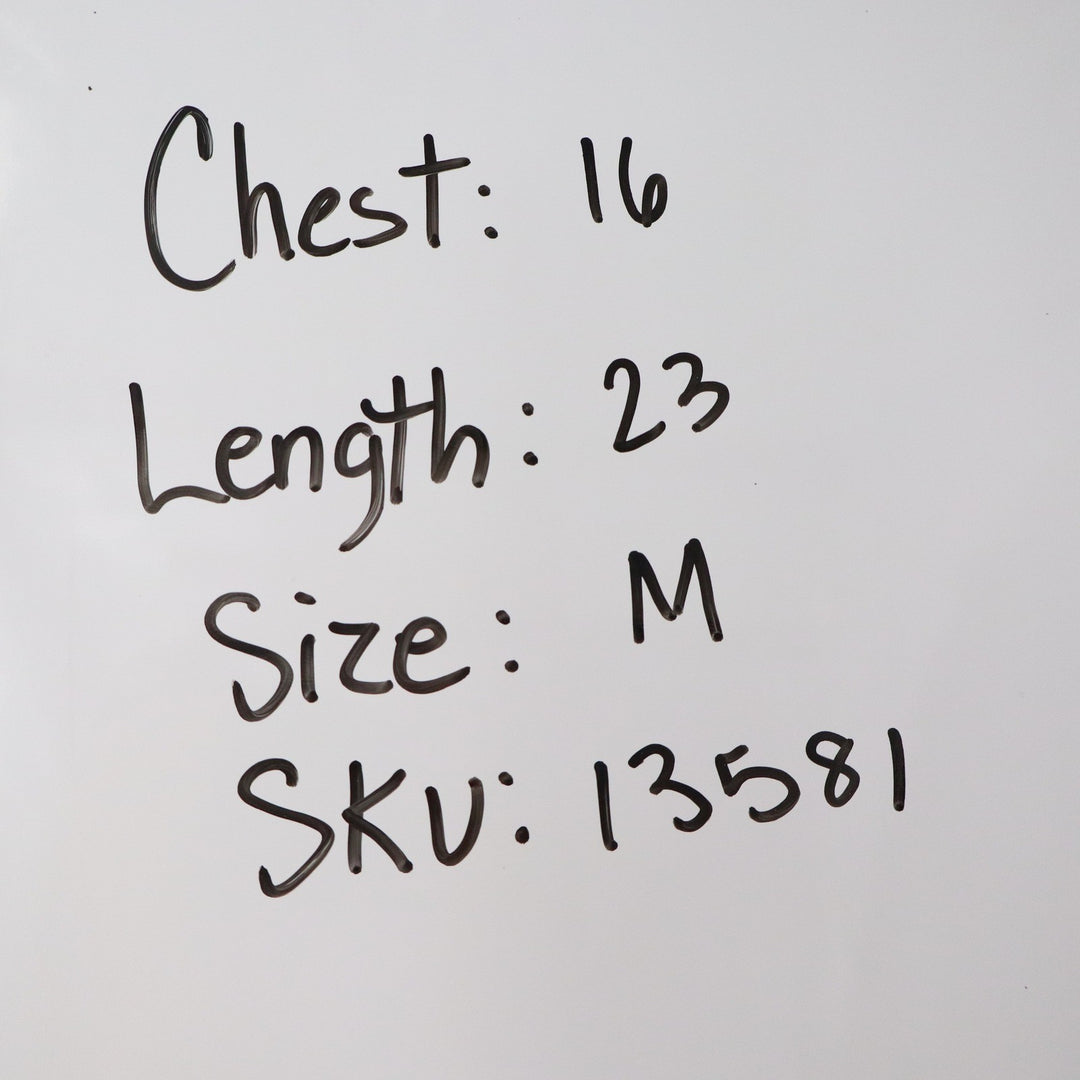 Chest: 16
Length: 23
Size: M
SKU: 13581